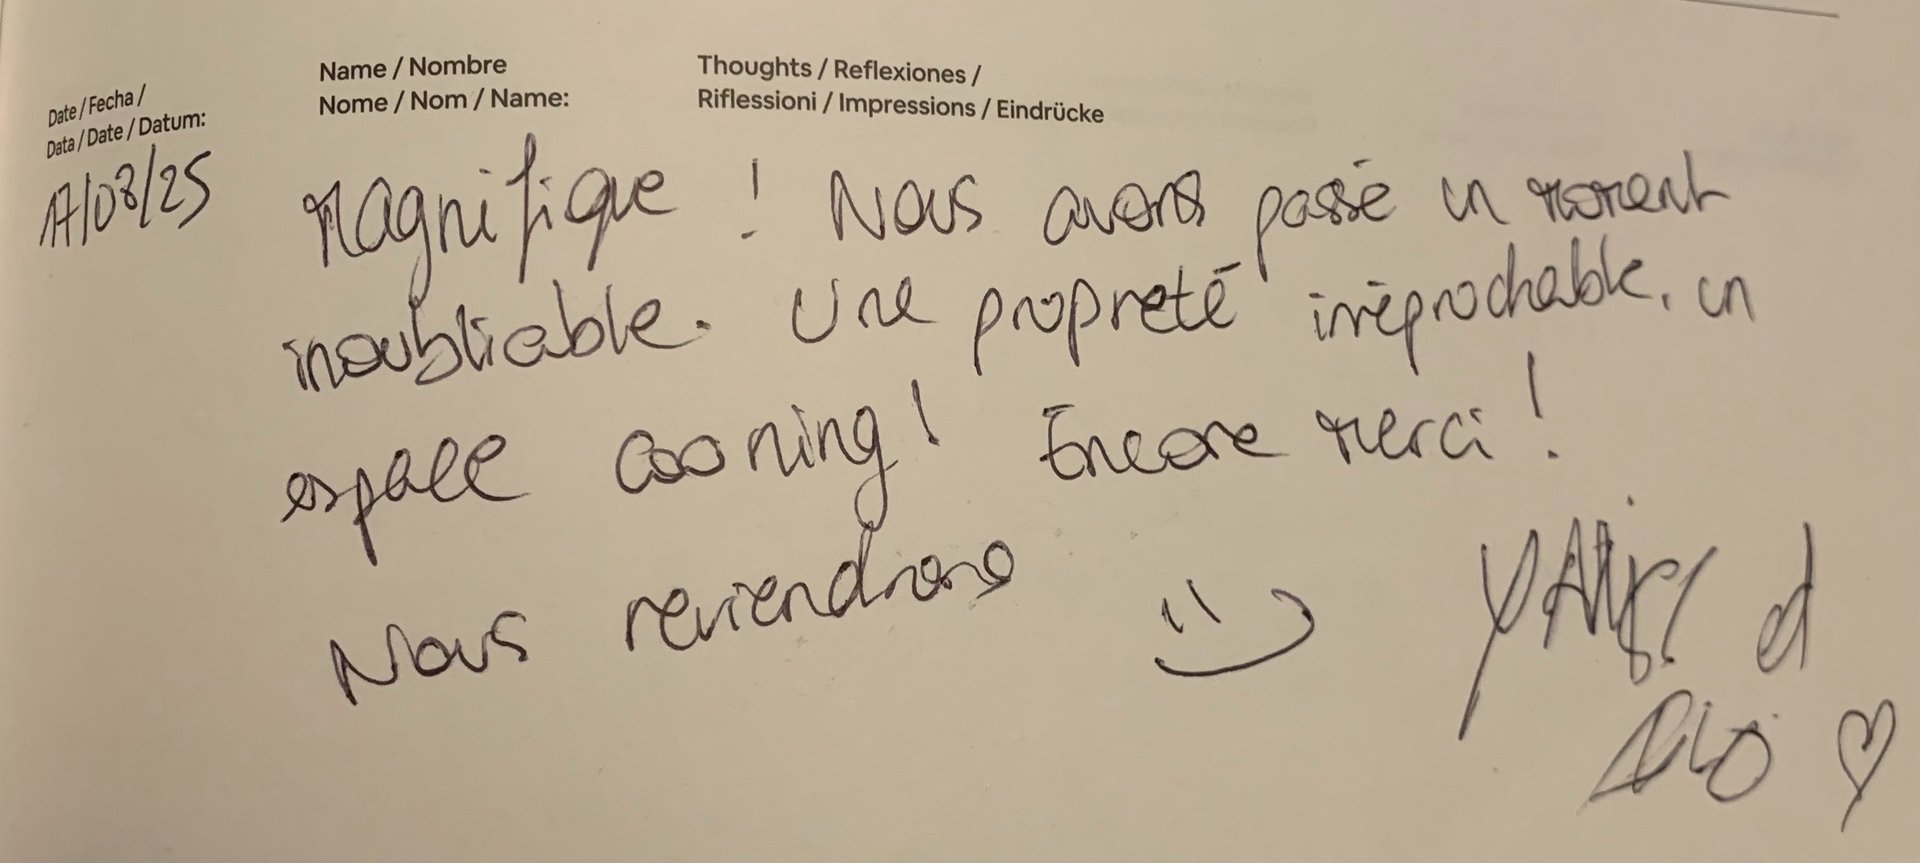 Date / Fecha /
Data / Date / Datum:
Name / Nombre
Nome / Nom / Name:
Thoughts / Reflexiones /
Riflessioni / Impressions / Eindrücke
17/08/25
Magnifique ! Nous avons passé un moment
inoubliable. Une propreté irréprochable, un
espace cooning ! Encore merci !
Nous reviendrons